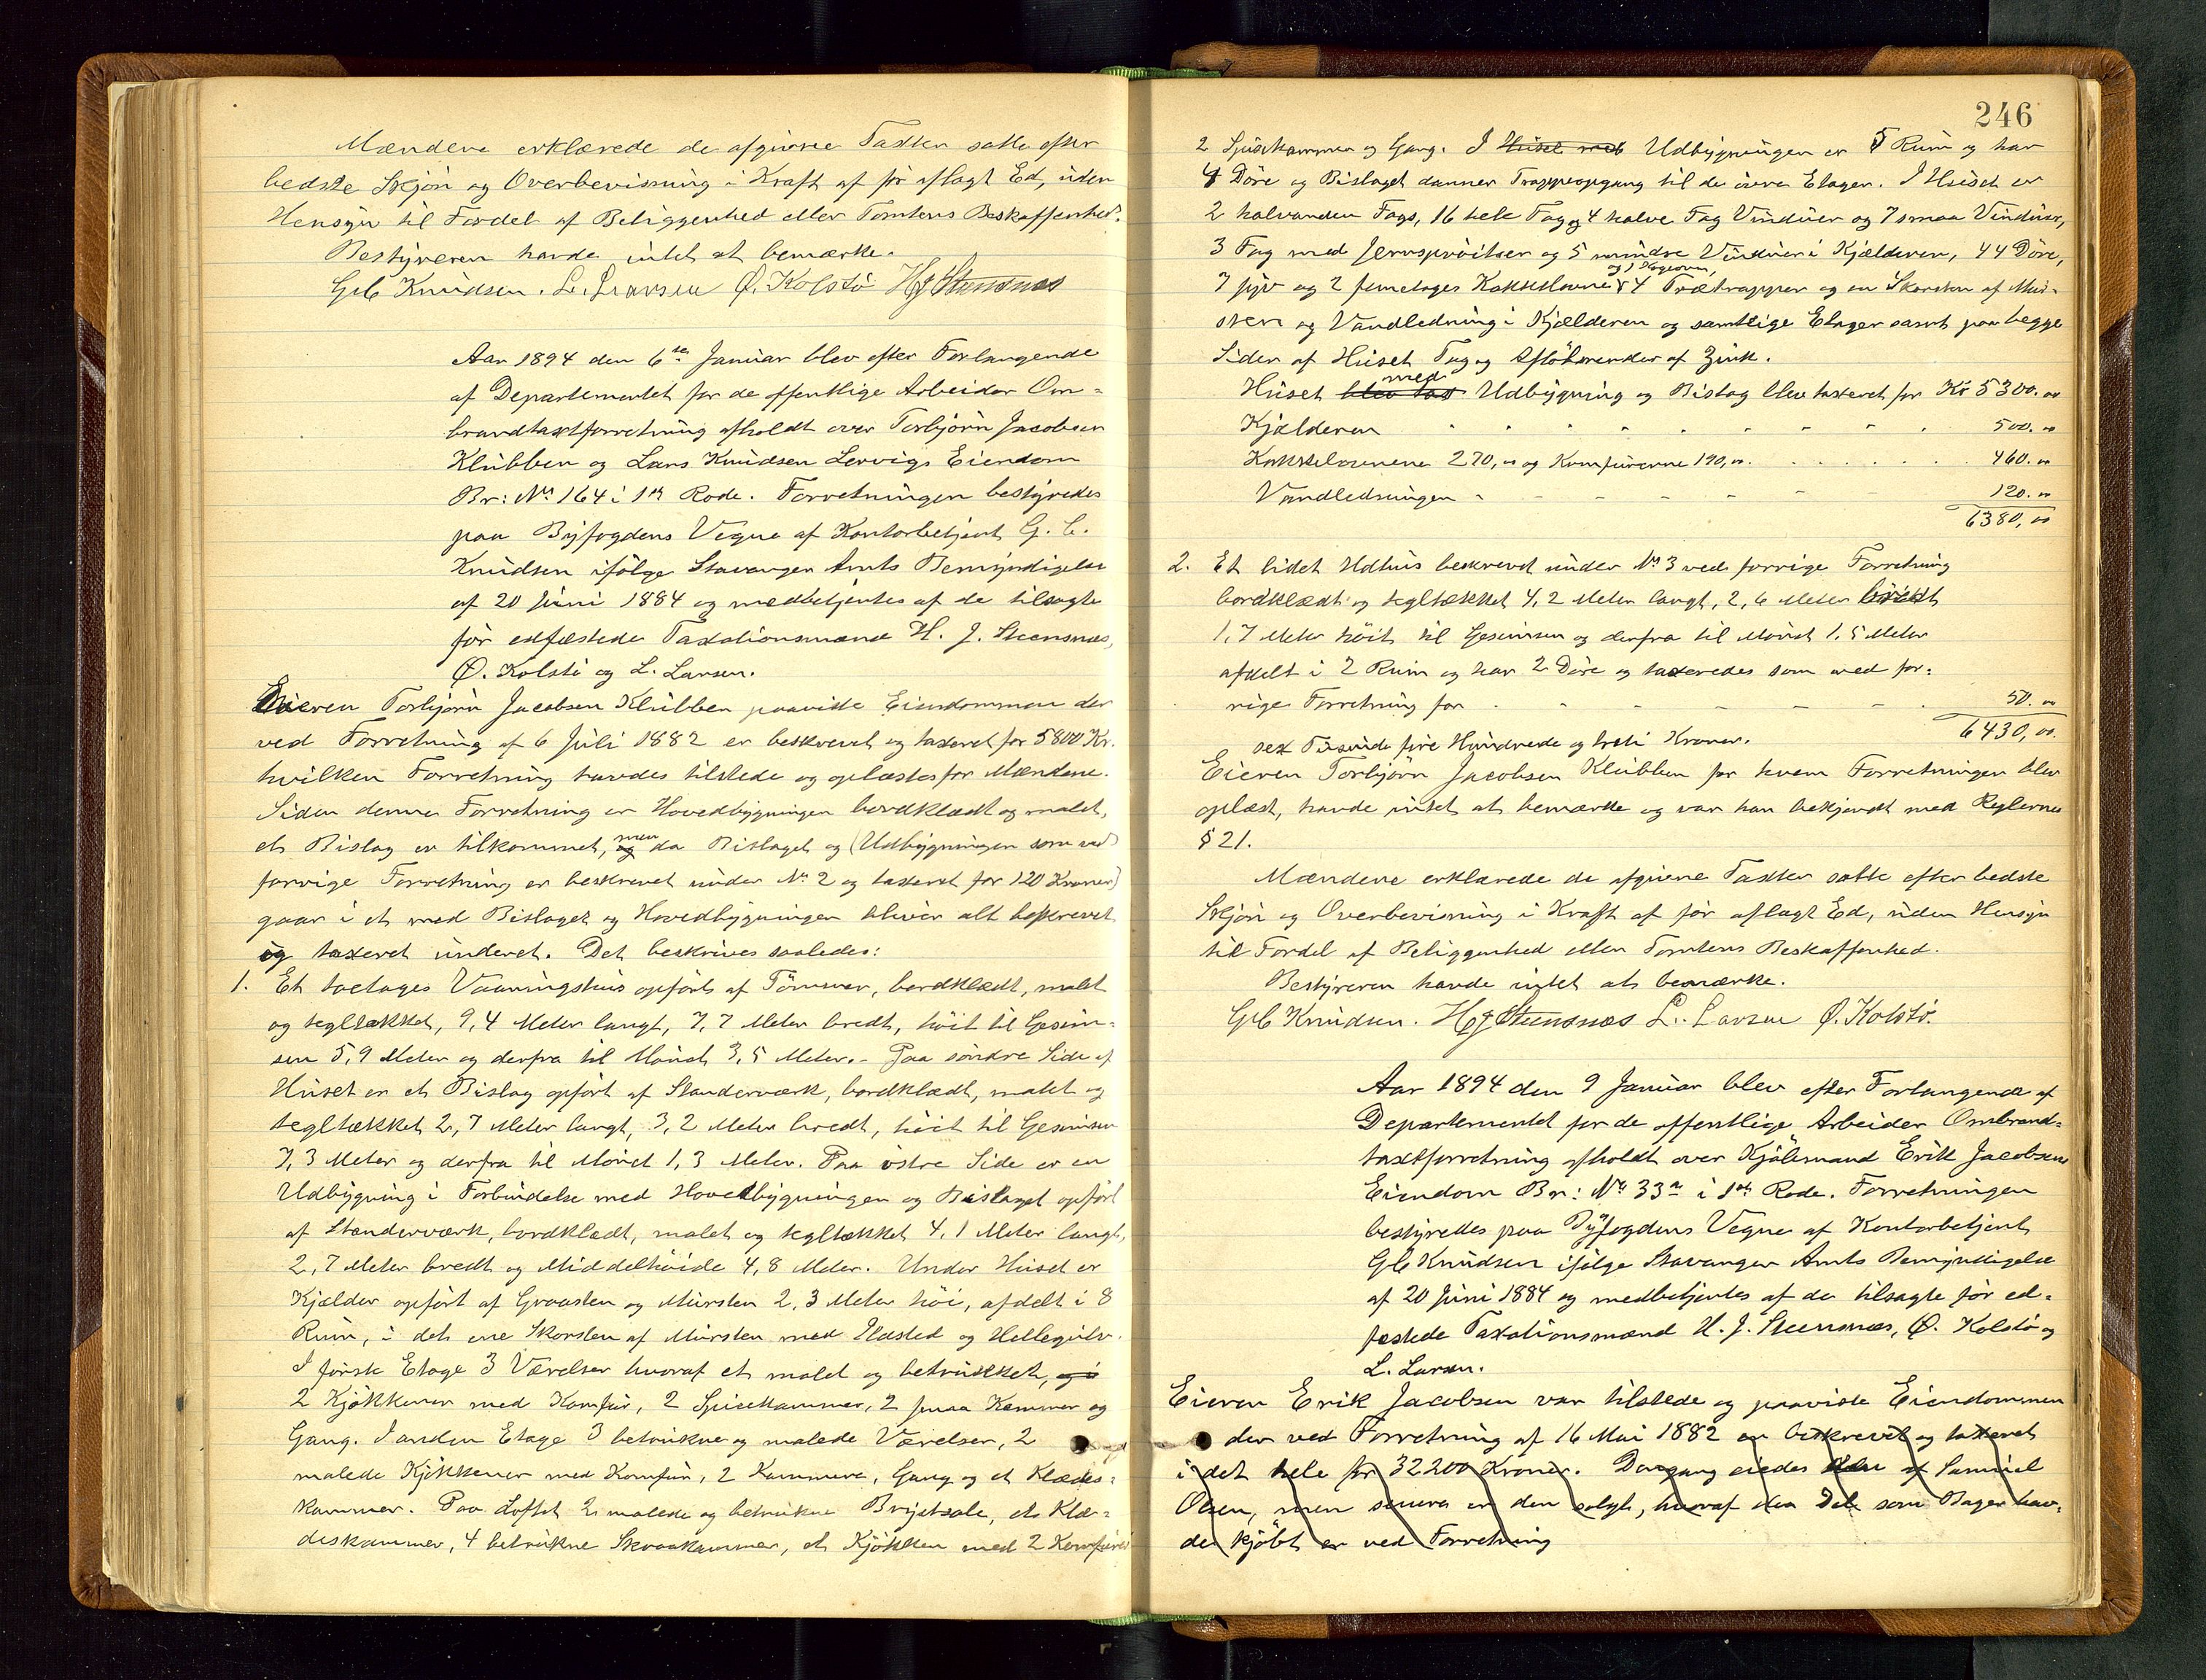 Mændene erklærede de afgivne Taxter satte efter
bedste Skjøn og Overbevisning i Kraft af før aflagt Ed, uden
Hensyn til Fordel af Beliggenhed eller Tomtens Beskaffenhed.
Bestyreren havde intet at bemærke.
GC Knudsen. L. Larsen Ø. Kolstø HJ Steensnæs
Aar 1894 den 6te Januar blev efter Forlangende
af Departementet for de offentlige Arbeider Om-
brandtaxtforretning afholdt over Torbjørn Jacobsen
Klubben og Lars Knudsen Lervigs Eiendom
Br: No 164 i 1ste Rode. Forretningen bestyredes
paa Byfogdens Vegne af Kontorbetjent G. C.
Knudsen ifølge Stavanger Amts Bemyndigelse
af 20 Juni 1884 og medbetjentes af de tilsagte
før edfæstede Taxationsmænd H. J. Steensnæs,
Ø. Kolstø og L. Larsen.
Eieren Torbjørn Jacobsen Klubben paaviste Eiendommen der
ved Forretning af 6 Juli 1882 er beskrevet og taxeret for 5800 Kr.
hvilken Forretning havdes tilstede og oplæstes for Mændene.
Siden denne Forretning er Hovedbygningen bordklædt og malet,
et Bislag er tilkommet, og men da Bislaget og (Udbygningen som ved
forrige Forretning er beskrevet under No 2 og taxeret for 120 Kroner)
gaar i et med Bislaget og Hovedbygningen bliver alt beskrevet
og taxeret underet. Det beskrives saaledes:
1. Et toetages Vaaningshus opført af Tømmer, bordklædt, malet
og tegltækket, 9,4 Meter langt, 7,7 Meter bredt, høit til Gesim-
sen 5,9 Meter og derfra til Mønet 3,5 Meter. - Paa søndre Side af
Huset er et Bislag opført af Standerværk, bordklædt, malet og
tegltækket 2,7 Meter langt, 3,2 Meter bredt, høit til Gesimsen
7,3 Meter og derfra til Mønet 1,3 Meter. Paa østre Side er en
Udbygning i Forbindelse med Hovedbygningen og Bislaget opført
af Standerværk, bordklædt, malet og tegltækket 4,1 Meter langt,
2,7 Meter bredt og Middelhøide 4,8 Meter. Under Huset er
Kjælder opført af Graasten og Mursten 2,3 Meter høi, afdelt i 8
Rum, i det ene Skorsten af Mursten med Ildsted og Hellegulv.
I første Etage 3 Værelser hvoraf et malet og betrukket, og i
2 Kjøkkener med Komfur, 2 Spisekammer, 2 smaa Kammer og
Gang. I anden Etage 3 betrukne og malede Værelser, 2
malede Kjøkkener med Komfur, 2 Kammere, Gang og et Klædes-
kammer. Paa Loftet 2 malede og betrukne Brystsale, et Klæ-
deskammer, 4 betrukne Skraakammer, et Kjøkken med 2 Komfurer
246
2 Spisekammer og Gang. I Huset med Udbygningen er 5 Rum og har
4 Døre og Bislaget danner Trappeopgang til de øvre Etager. I Huset er
2 halvanden Fags, 16 hele Fag og 4 halve Fag Vinduer og 7 smaa Vinduer,
3 Fag med Jernsprøitser og 5 mindre Vinduer i Kjælderen, 44 Døre,
og 1 Kogeovn,
7 fyr og 2 femetages Kakkelovne 4 Trætrapper og en Skorsten af Mur-
sten og Vandledning i Kjælderen og samtlige Etager samt paa begge
Sider af Huset Tag og Afløbsrender af Zink.
Huset blev tax med Udbygning og Bislag blev taxeret for Kr 5300.00
Kjælderen 500.00
Kakkelovnene 270,00 og Komfurerne 190,00. 460.00
Vandledningen 120.00
6380,00
2. Et lidet Udhus beskrevet under No 3 ved forrige Forretning
bordklædt og tegltækket 4,2 Meter langt, 2,6 Meter bredt
1,7 Meter høit til Gesimsen og derfra til Mønet 1,5 Meter
afdelt i 2 Rum og har 2 Døre og taxeredes som ved for-
rige Forretning for 50.00
6430,00.
sex Tusinde fire Hundrede og treti Kroner.
Eieren Torbjørn Jacobsen Klubben for hvem Forretningen blev
oplæst, havde intet at bemærke og var han bekjendt med Reglernes
§ 21.
Mændene erklærede de afgivne Taxter satte efter bedste
Skjøn og Overbevisning i Kraft af før aflagt Ed, uden Hensyn
til Fordel af Beliggenhed eller Tomtens Beskaffenhed.
Bestyreren havde intet at bemærke.
GC Knudsen. HJ Steensnæs L. Larsen Ø. Kolstø.
Aar 1894 den 9 Januar blev efter Forlangende af
Departementet for de offentlige Arbeider Ombrand-
taxtforretning afholdt over Kjøbmand Erik Jacobsens
Eiendom Br: No 33a i 1ste Rode. Forretningen
bestyredes paa Byfogdens Vegne af Kontorbetjent
GC Knudsen ifølge Stavanger Amts Bemyndigelse
af 20 Juni 1884 og medbetjentes af de tilsagte før ed-
fæstede Taxationsmænd H. J. Steensnæs, Ø. Kolstø og
L. Larsen.
Eieren Erik Jacobsen var tilstede og paaviste Eiendommen
der ved Forretning af 16 Mai 1882 er beskrevet og taxeret
i det hele for 32200 Kroner. Dengang eiedes den af Samuel
Olsen, men senere er den solgt, hvoraf den Del som Bager hav-
de kjøbt er ved Forretning